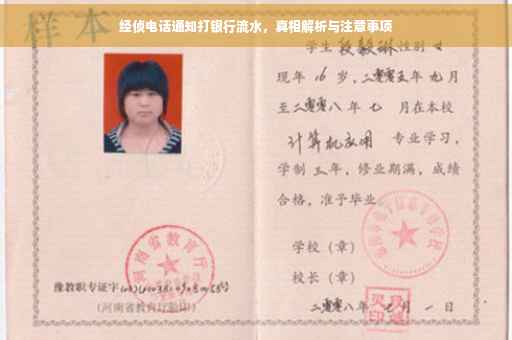 经侦电话通知打银行流水，真相解析与注意事项
样本
学生 段毅琳 性别 女
现年 16 岁，二零零五年 九 月
至二零零八年 七 月在本校
计算机应用 专业学习，
学制 三 年，修业期满，成绩
合格，准予毕业
学校（章）
校长（章）
二零零八年 月 一 日
河南省教育厅
豫教职专证字
（河南省教育厅验印）